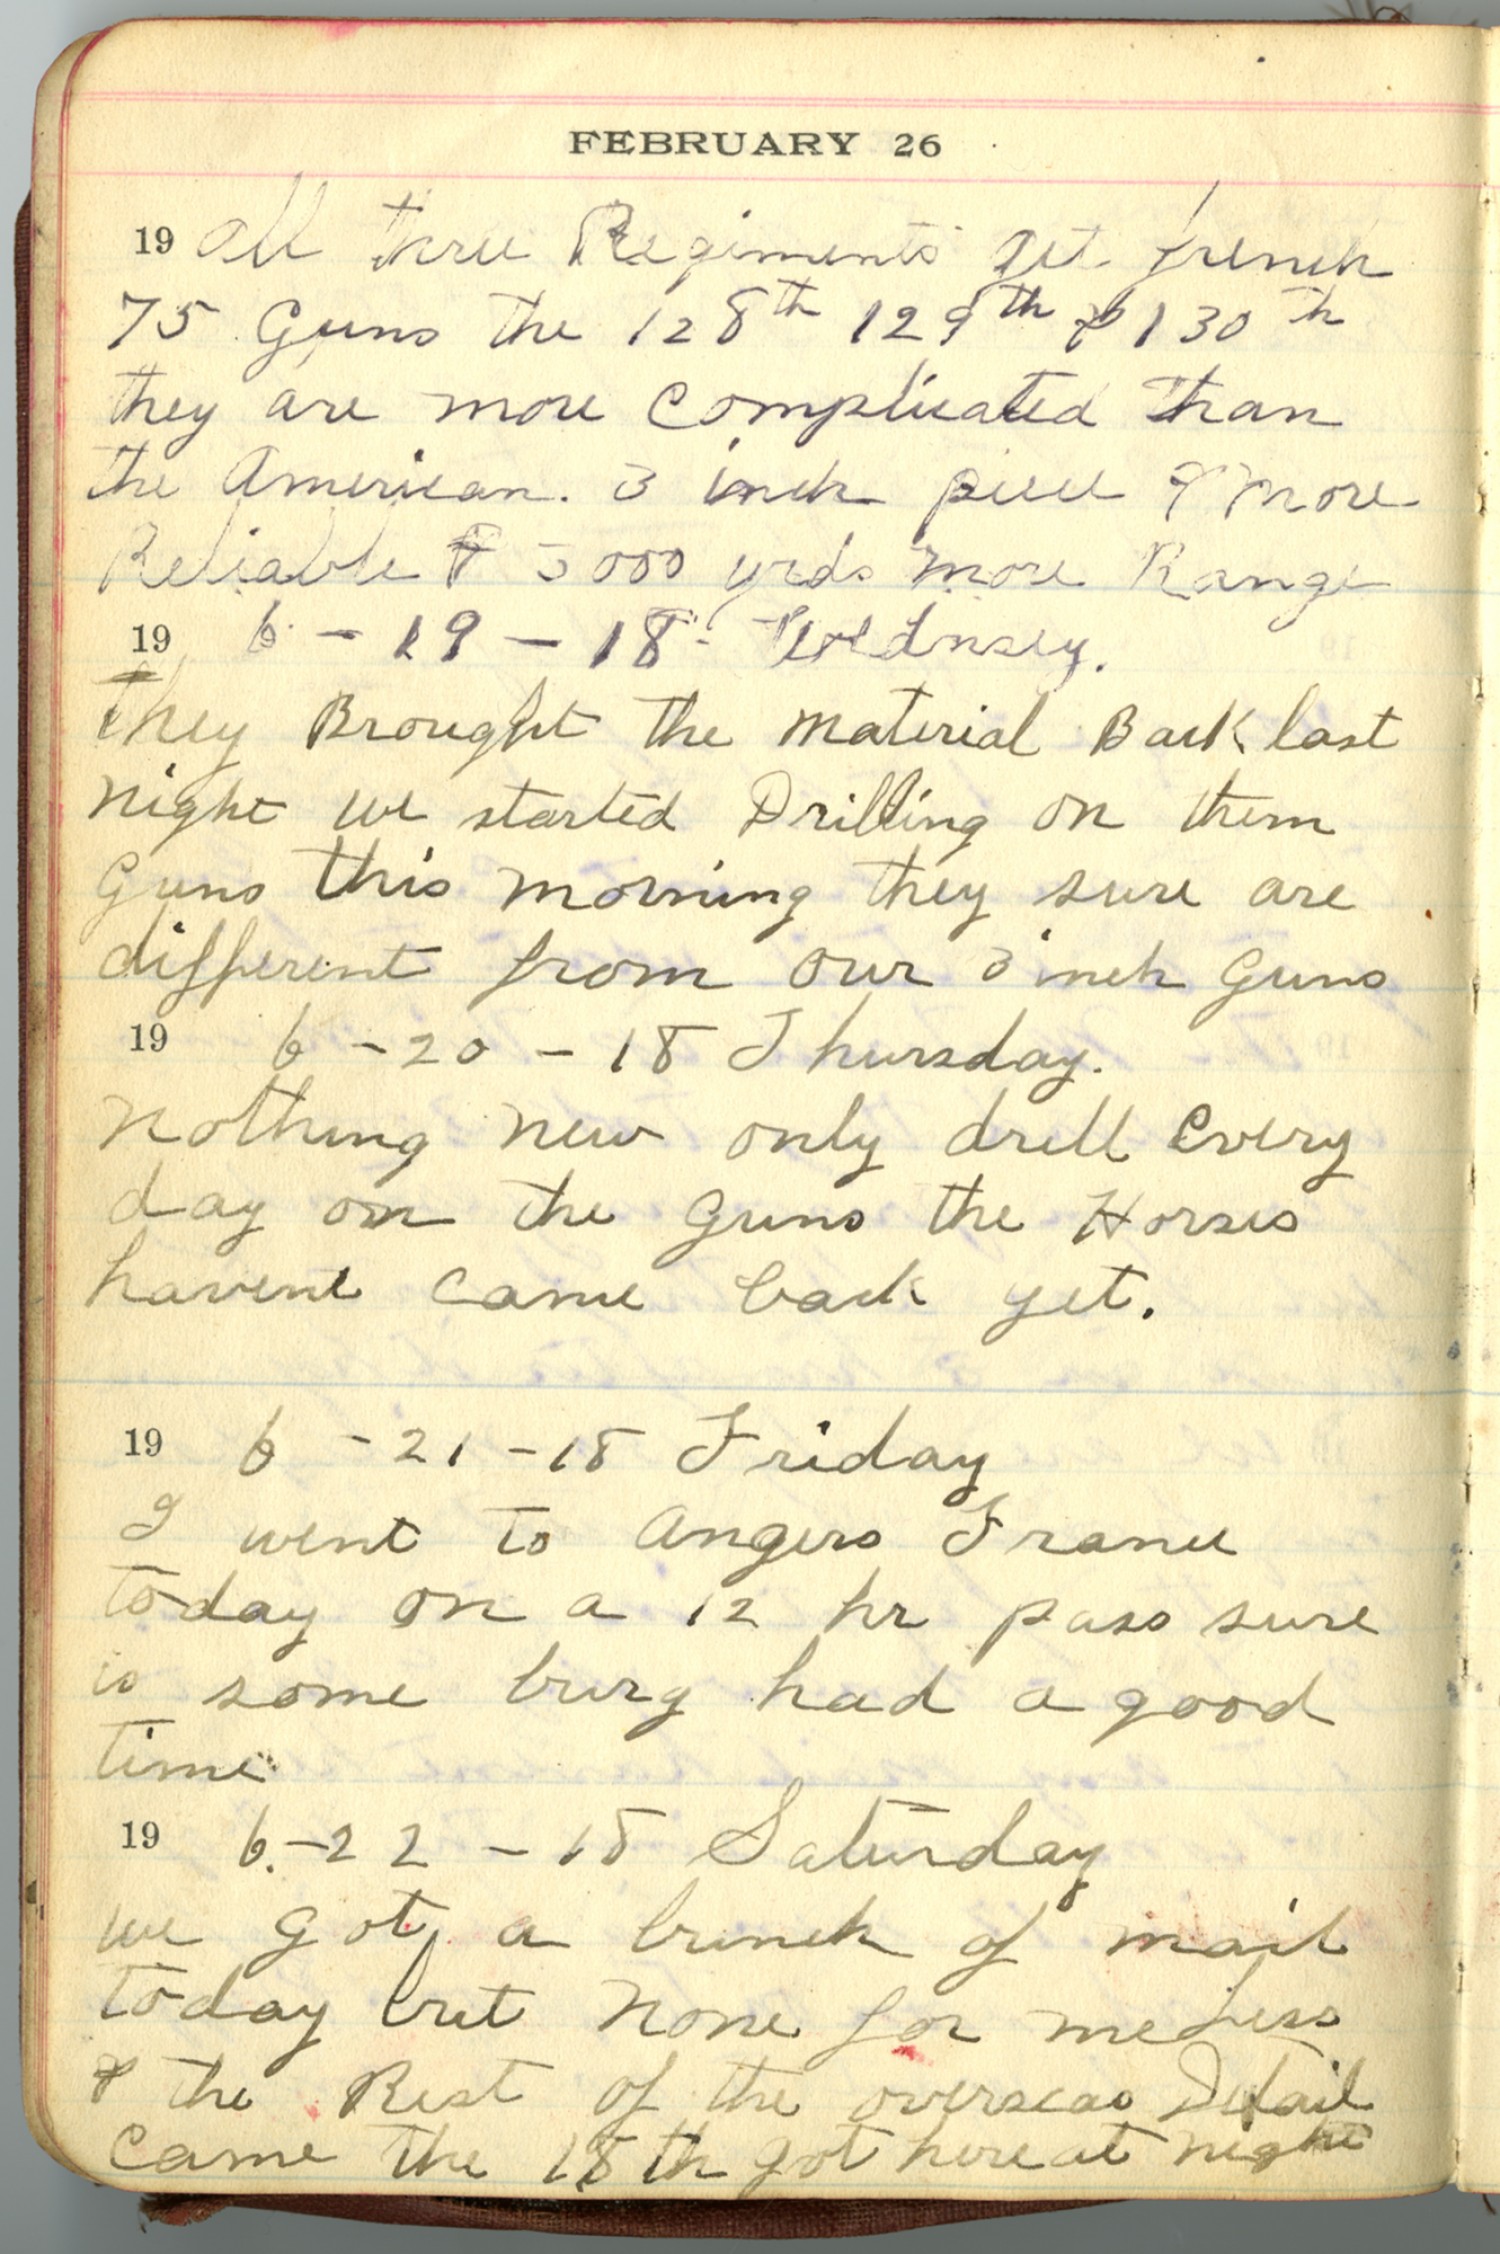 FEBRUARY 26
19 all three Regiments get french
75 Guns the 128th 129th & 130th
they are more complicated than
the American. 3 inch piece & more
Reliable & 3000 yrds more Range
19 6 - 19 - 18 - Wednsey.
They Brought the material Back last
night we started Drilling on them
Guns this morning they sure are
different from our 3 inch Guns
19 6 - 20 - 18 Thursday.
Nothing new only drill Every
day on the Guns the Horses
havent came back yet.
19 6 - 21 - 18 Friday
I went to Angers France
today on a 12 hr pass sure
is some burg had a good
time
19 6. - 22 - 18 Saturday
we got a bunch of mail
today but none for me Less
& the Rest of the overseas Detail
came the 18th got here at night